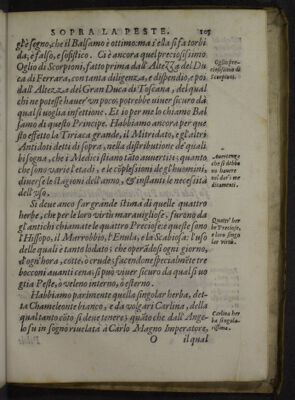 SOPRA LA PESTE. 105
gl'è segno, che il Balsamo è ottimo: ma s'ella si fa torbi
da, è falso, e sofistico. Ci è ancora quel preciosissimo
Oglio di Scorpioni, fatto prima dall'Altezza del Du
ca di Ferrara, con tanta diligenza, e dispendio, e poi
dall'Altezza del Gran Duca di Toscana, del qual
chi ne potesse hauer un poco, potrebbe uiuer sicuro dà
qual si uoglia infettione. Et io per me lo chiamo Bal
samo di questo Principe. Habbiamo ancora per que
sto effetto la Tiriaca grande, il Mitridato, e gl'altri
Antidoti detti di sopra, nella distributione de' quali
bisogna, che i Medici stiano tãto auuertiti; quanto,
che sono varie l'etadi, e le cõplessioni de gl'huomini,
diuerse le stagioni dell'anno, & instanti le necessità
dell'vso.
Si deue anco far grande stima di quelle quattro
herbe, che per le loro virtù marauigliose, furono da
gl'antichi chiamate le quattro Preciose: e queste sono
l'Hissopo, il Marrobbio, l'Enula, e la Scabiosa: l'uso
delle quali è tanto lodato; che operãdosi ogni giorno,
d'ogn'hora, cotte, ò crude; facendone specialmẽte tre
bocconi auanti cena; si può viuer sicuro da qual si uo
glia Peste, ò veleno interno, ò esterno.
Habbiamo parimente quella singolar herba, det-
ta Chameleonte bianco, e da volgari Carlina, della
qual tanto cõto si deue tenere; quãto che dall'Ange-
lo fu in sogno riuelata à Carlo Magno Imperatore,
O il qual
Oglio pre-
ciosissimo di
Scorpioni.
Auuertenze
che si debbo
no hauere
nel dar' i me
dicamenti.
Quattr' her
be Preciose,
e loro singo
lar virtù.
Carlina her
ba singola-
rissima.